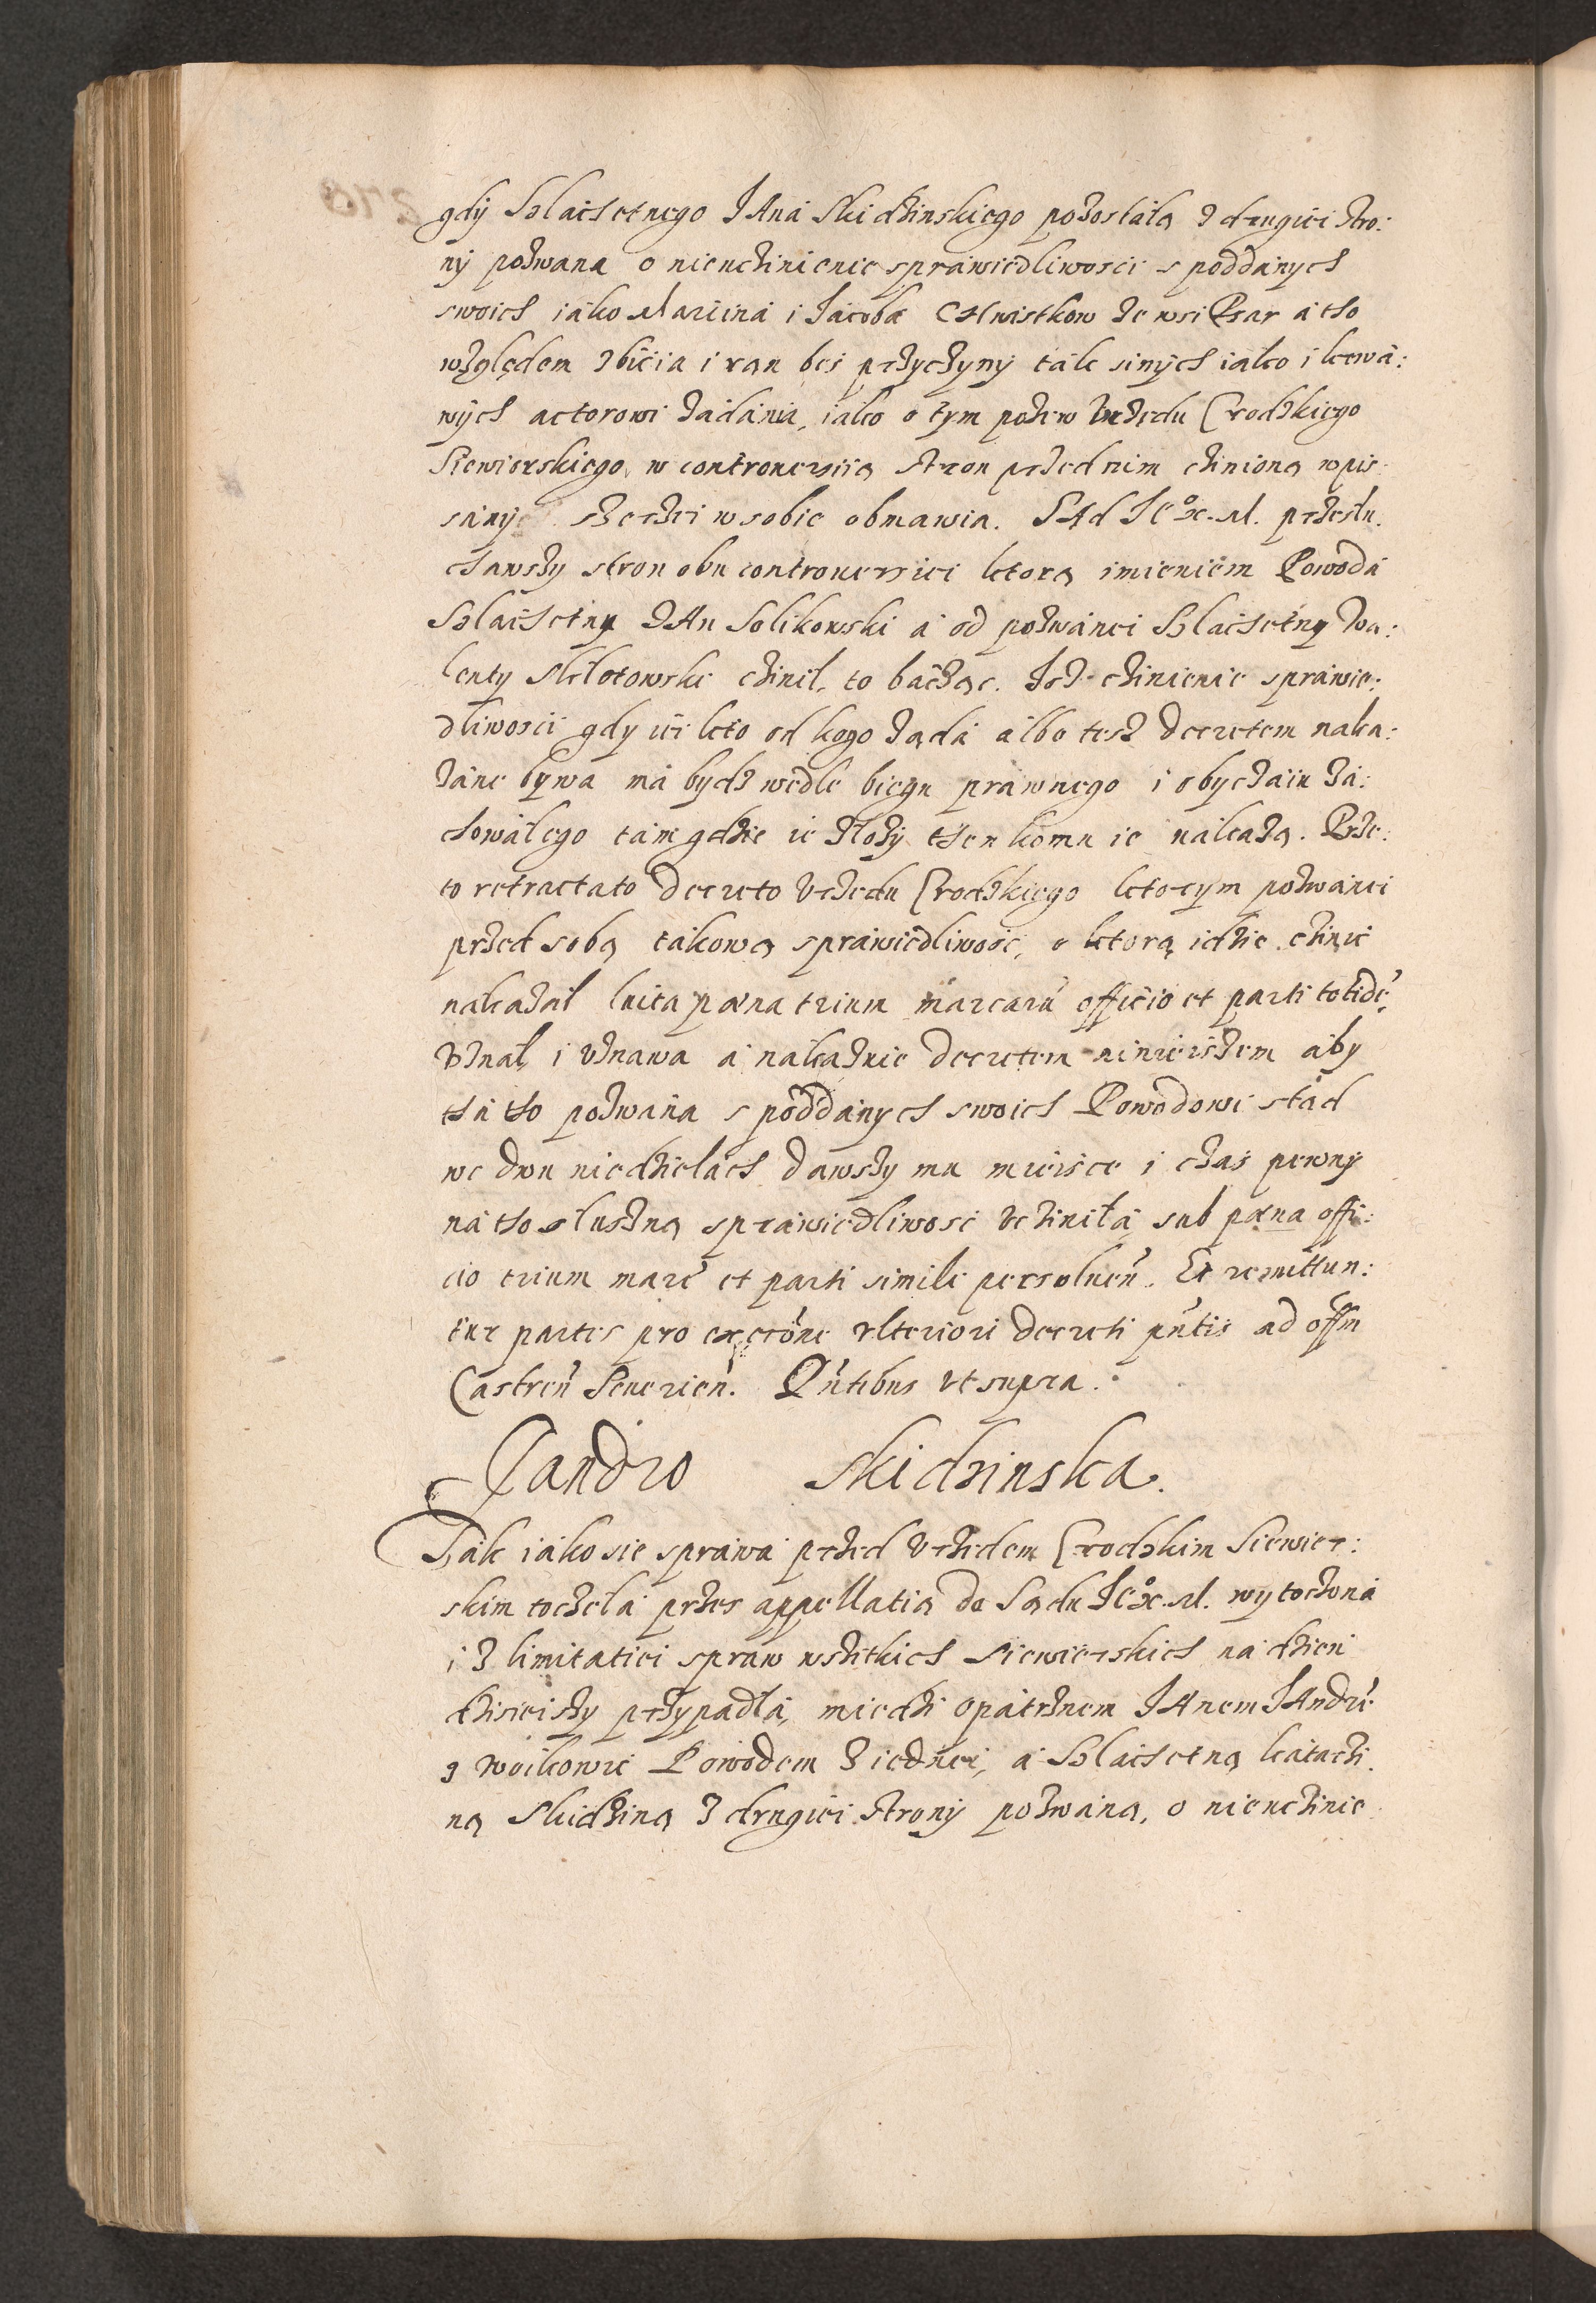 gdÿ Slachetnego JAna Skidzinskiego pozostalą z drugiei stro:
nÿ pozwana o nieuczinienie sprawiedliwosci s poddanych
swoich iako Marcina i Jacoba Chwistkow ze wsi Psar a tho
względem zbicia i ran bes przyczynÿ tak sinÿch iako i krwa:
wÿch actorowi zadania, iako o tym pozew Vrzędu Grodzkiego
Siewierskiego, w controuersiią stron przed nim czinioną wpis
sanÿ szerzei w sobie obmawia. SAd JE° X. M. przeslu.
chawszy stron obu controuersiei ktorą imieniem Powoda
Slachetny JAn Solikowski a od pozwanei Slachetny Wa:
lenty Sklotowski czinil, to bacząc. Jsz czinienie sprawie:
dliwosci gdy iei kto od kogo żąda albo tesz Decretem naka:
zane bywa ma bydz wedle biegu prawnego i obyczaiu za:
chowalego tam gdzie ie złożÿ then komu ie nakażą. Prze:
to retractato Decreto Vrzedu Grodzkiego ktorym pozwanei
przed sobą takową sprawiedliwosc, o ktorą idzie czinic
nakazał luita pœna trium marcarū officio et parti totidē,
Vznał i Vznawa a nakazuie Decretem ninieiszem aby
tha tho pozwana s poddanych swoich Powodowi stąd
we dwu niedzielach dawszy mu mieisce i czas pewnÿ
na tho słuszną sprawiedliwosc Vcziniła, sub pœna offi:
cio trium marc̄ et parti simile persoluen̄. Et remittun:
tur partes pro exc̄one vlteriori decreti pn̄tis ad offm
Castren̄ Seuerien̄. Pn̄tibus vt supra.
Jandro Skidzinska.
Tak iako sie sprawa przed Vrzedem Grodzkim Siewier:
skim toczeła przes appellatią do Sądu JE° X. M. wytoczona
i z limitatiei spraw wszitkich Siewierskich na dzien
dzisieiszy przypadła, miedzi opatrznem JAnem JAndrē
z Woikowic Powodem z iednei, a Slachetną Katarzi.
ną Skidziną z drugiei stronÿ pozwaną, o nieuczinie